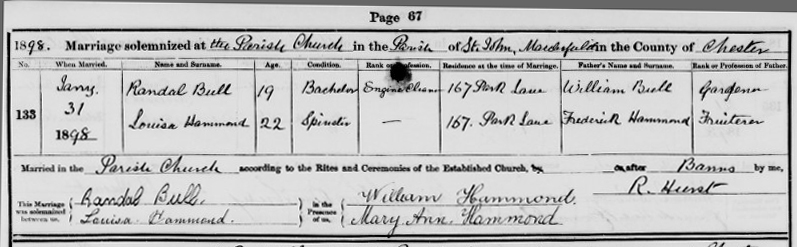 Page 67
1898. Marriage solemnized at the Parish Church in the Parish of St. John, Macclesfield in the County of Chester
No. When Married. Name and Surname. Age. Condition. Rank or Profession. Residence at the time of Marriage. Father's Name and Surname. Rank or Profession of Father.
Jany. Randal Bull 19 Bachelor Engine Cleaner 167 Park Lane William Bull Gardener
133 31
1898 Louisa Hammond 22 Spinster — 167. Park Lane Frederick Hammond Fruiterer
Married in the Parish Church according to the Rites and Ceremonies of the Established Church, by or after Banns by me,
R. Hurst
This Marriage was solemnized between us, Randal Bull in the Presence of us, William Hammond.
Louisa Hammond. Mary Ann Hammond